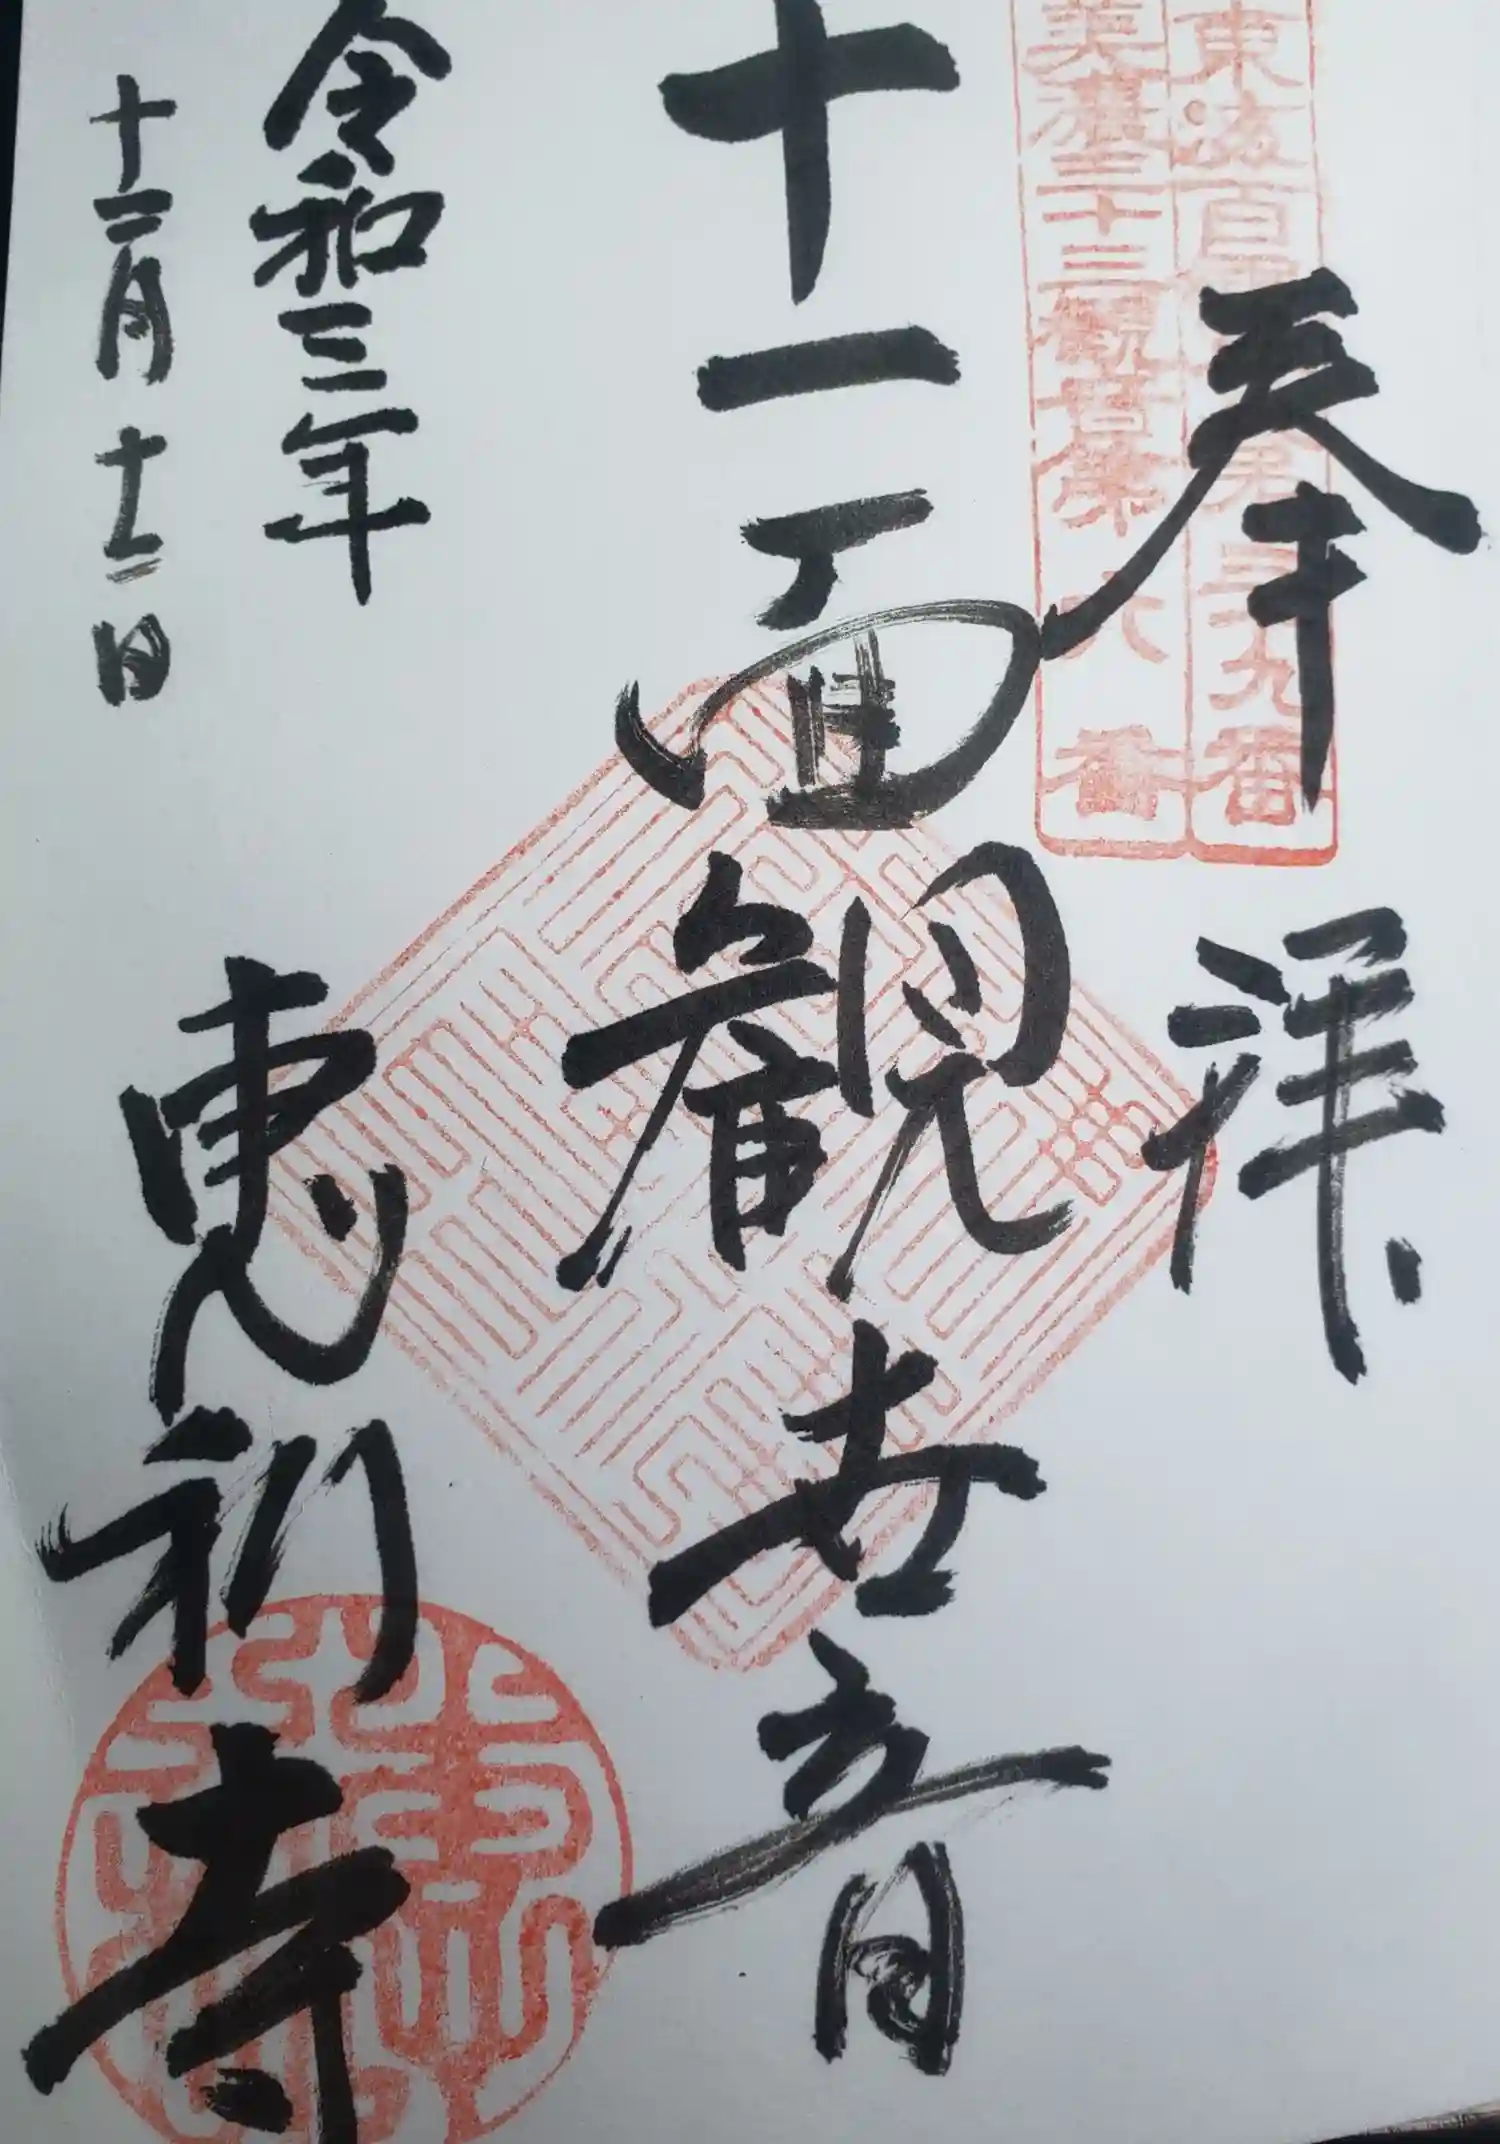 奉拝
東海百観音第三九番
美濃三十三観音第六番
十一面観世音
令和三年
十二月十二日
恵利寺